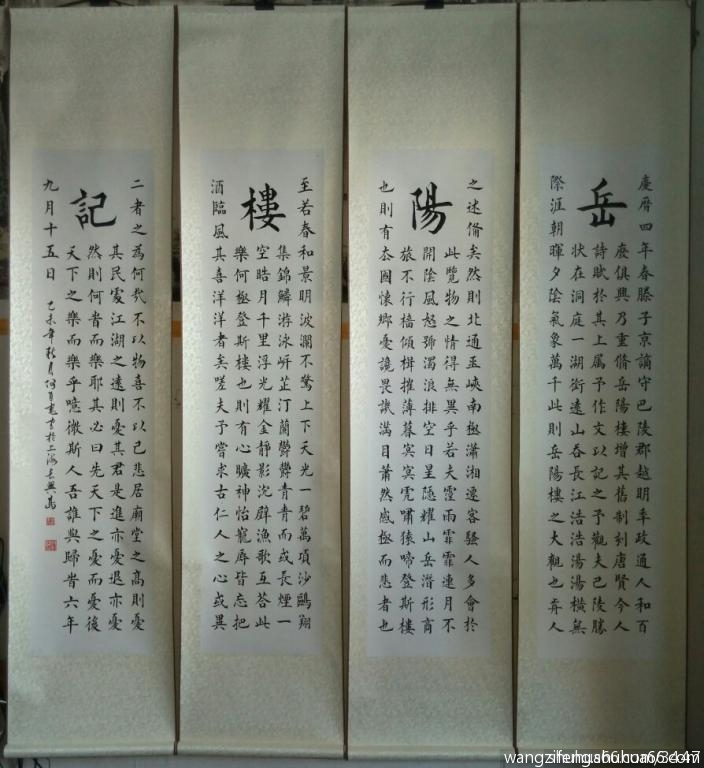 岳
慶曆四年春滕子京謫守巴陵郡越明秊政通人和百
廢俱興乃重脩岳陽樓增其舊制刻唐賢今人
詩賦於其上屬予作文以記之予觀夫巴陵勝
狀在洞庭一湖銜遠山吞長江浩浩湯湯橫無
際涯朝暉夕陰氣象萬千此則岳陽樓之大觀也歬人
陽
之述俻矣然則北通巫峽南極瀟湘遷客騷人多會於
此覽物之情得無異乎若夫霪雨霏霏連月不
開陰風怒號濁浪排空日星隱耀山岳潛形商
旅不行檣傾楫摧薄暮冥冥虎嘯猿啼登斯樓
也則有去國懷鄉憂讒畏譏滿目蕭然感極而悲者也
樓
至若春和景明波瀾不驚上下天光一碧萬頃沙鷗翔
集錦鱗游泳岍芷汀蘭鬱鬱青青而或長煙一
空皓月千里浮光耀金靜影沉璧漁歌互荅此
樂何極登斯樓也則有心曠神怡寵辱皆忘把
酒臨風其喜洋洋者矣嗟夫予嘗求古仁人之心或異
記
二者之為何哉不以物喜不以己悲居廟堂之高則憂
其民處江湖之遠則憂其君是進亦憂退亦憂
然則何旹而樂耶其必曰先天下之憂而憂後
天下之樂而樂乎噫微斯人吾誰與歸旹六年
九月十五日 己未年秋月 書於上海長興島